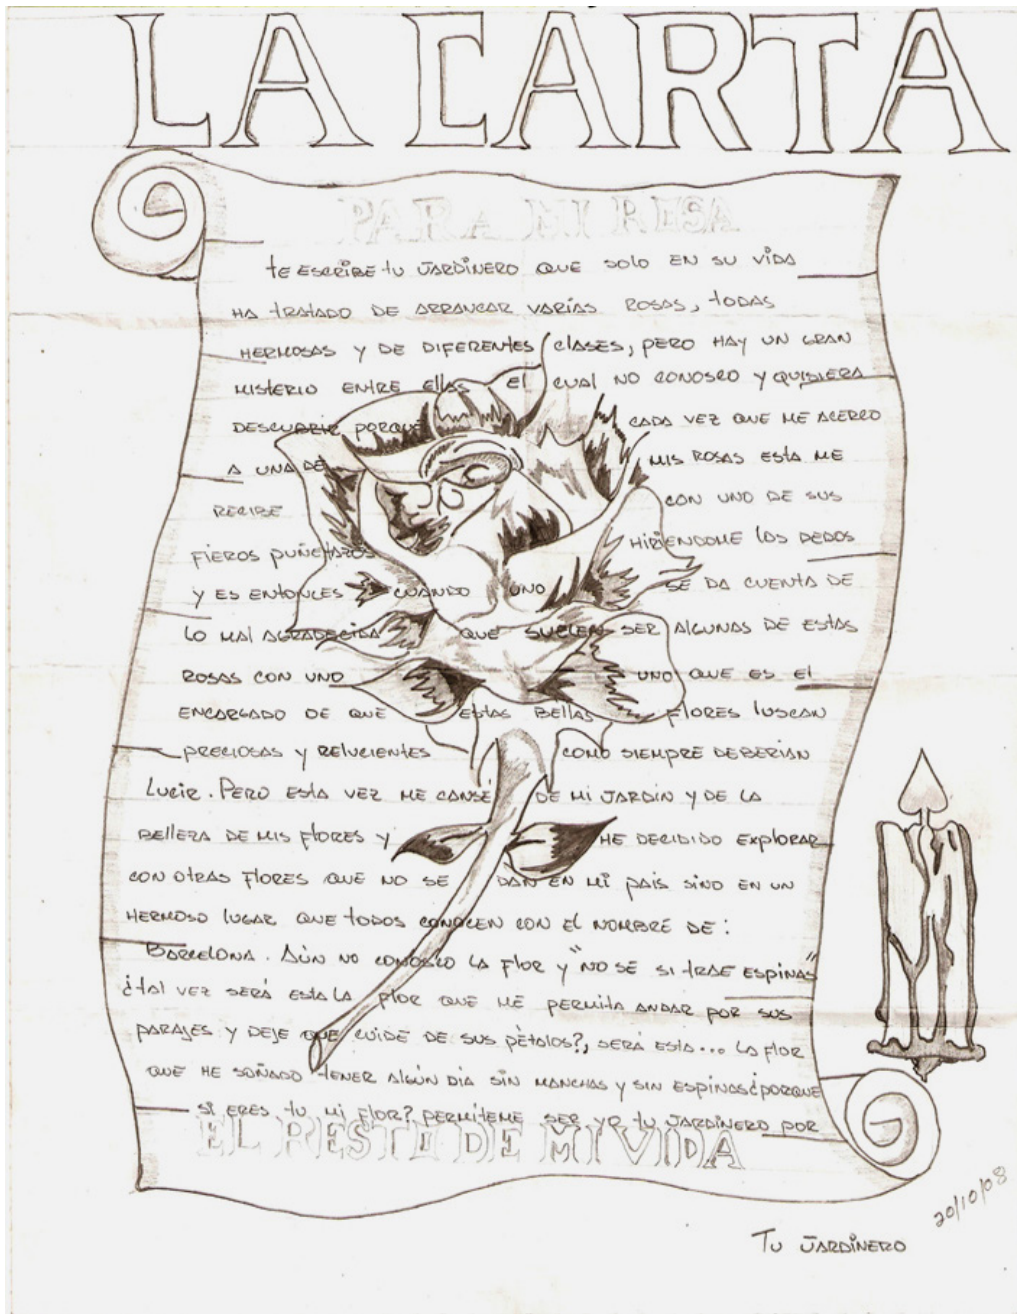 LA CARTA
PARA MI ROSA
te ESCRIBE tu JARDINERO QUE SOLO EN SU VIDA
HA TRATADO DE ARRANCAR VARÍAS ROSAS, TODAS
HERMOSAS Y DE DIFERENTES CLASES, PERO HAY UN GRAN
MISTERIO ENTRE ELLAS El CUAL NO CONOSCO Y QUISIERA
DESCUBRIR PORQUE CADA VEZ QUE ME ACERCO
A UNA DE MIS ROSAS ESTA ME
RECIBE CON UNO DE SUS
FIEROS PUÑETAZOS HIRIENDOME LOS DEDOS
Y ES ENTONCES CUANDO UNO SE DA CUENTA DE
LO MAL AGRADECIDA QUE SUELEN SER ALGUNAS DE ESTAS
ROSAS CON UNO UNO QUE ES El
ENCARGADO DE QUE ESTAS BELLAS FLORES LUSCAN
PRECIOSAS Y RELUCIENTES COMO SIEMPRE DEBERIAN
LUCIR. PERO ESTA VEZ ME CANSÉ DE MI JARDIN Y DE LA
BELLEZA DE MIS FLORES Y HE DECIDIDO EXPLORAR
CON OTRAS FLORES QUE NO SE DAN EN MI PAÍS SINO EN UN
HERMOSO LUGAR QUE TODOS CONOCEN CON EL NOMBRE DE:
BARCELONA. AÚN NO CONOSCO LA FLOR Y "NO SÉ SI TRAE ESPINAS"
¿TAL VEZ SERÁ ESTA LA FLOR QUE ME PERMITA ANDAR POR SUS
PARAJES Y DEJE QUE CUIDE DE SUS PÈTALOS?, SERÁ ESTA... LA FLOR
QUE HE SOÑADO TENER ALGÚN DÍA SIN MANCHAS Y SIN ESPINAS ¿PORQUE
SI ERES TU MI FLOR? PERMÍTEME SER YO TU JARDINERO POR
EL RESTO DE MI VIDA
20/10/08
TU JARDINERO